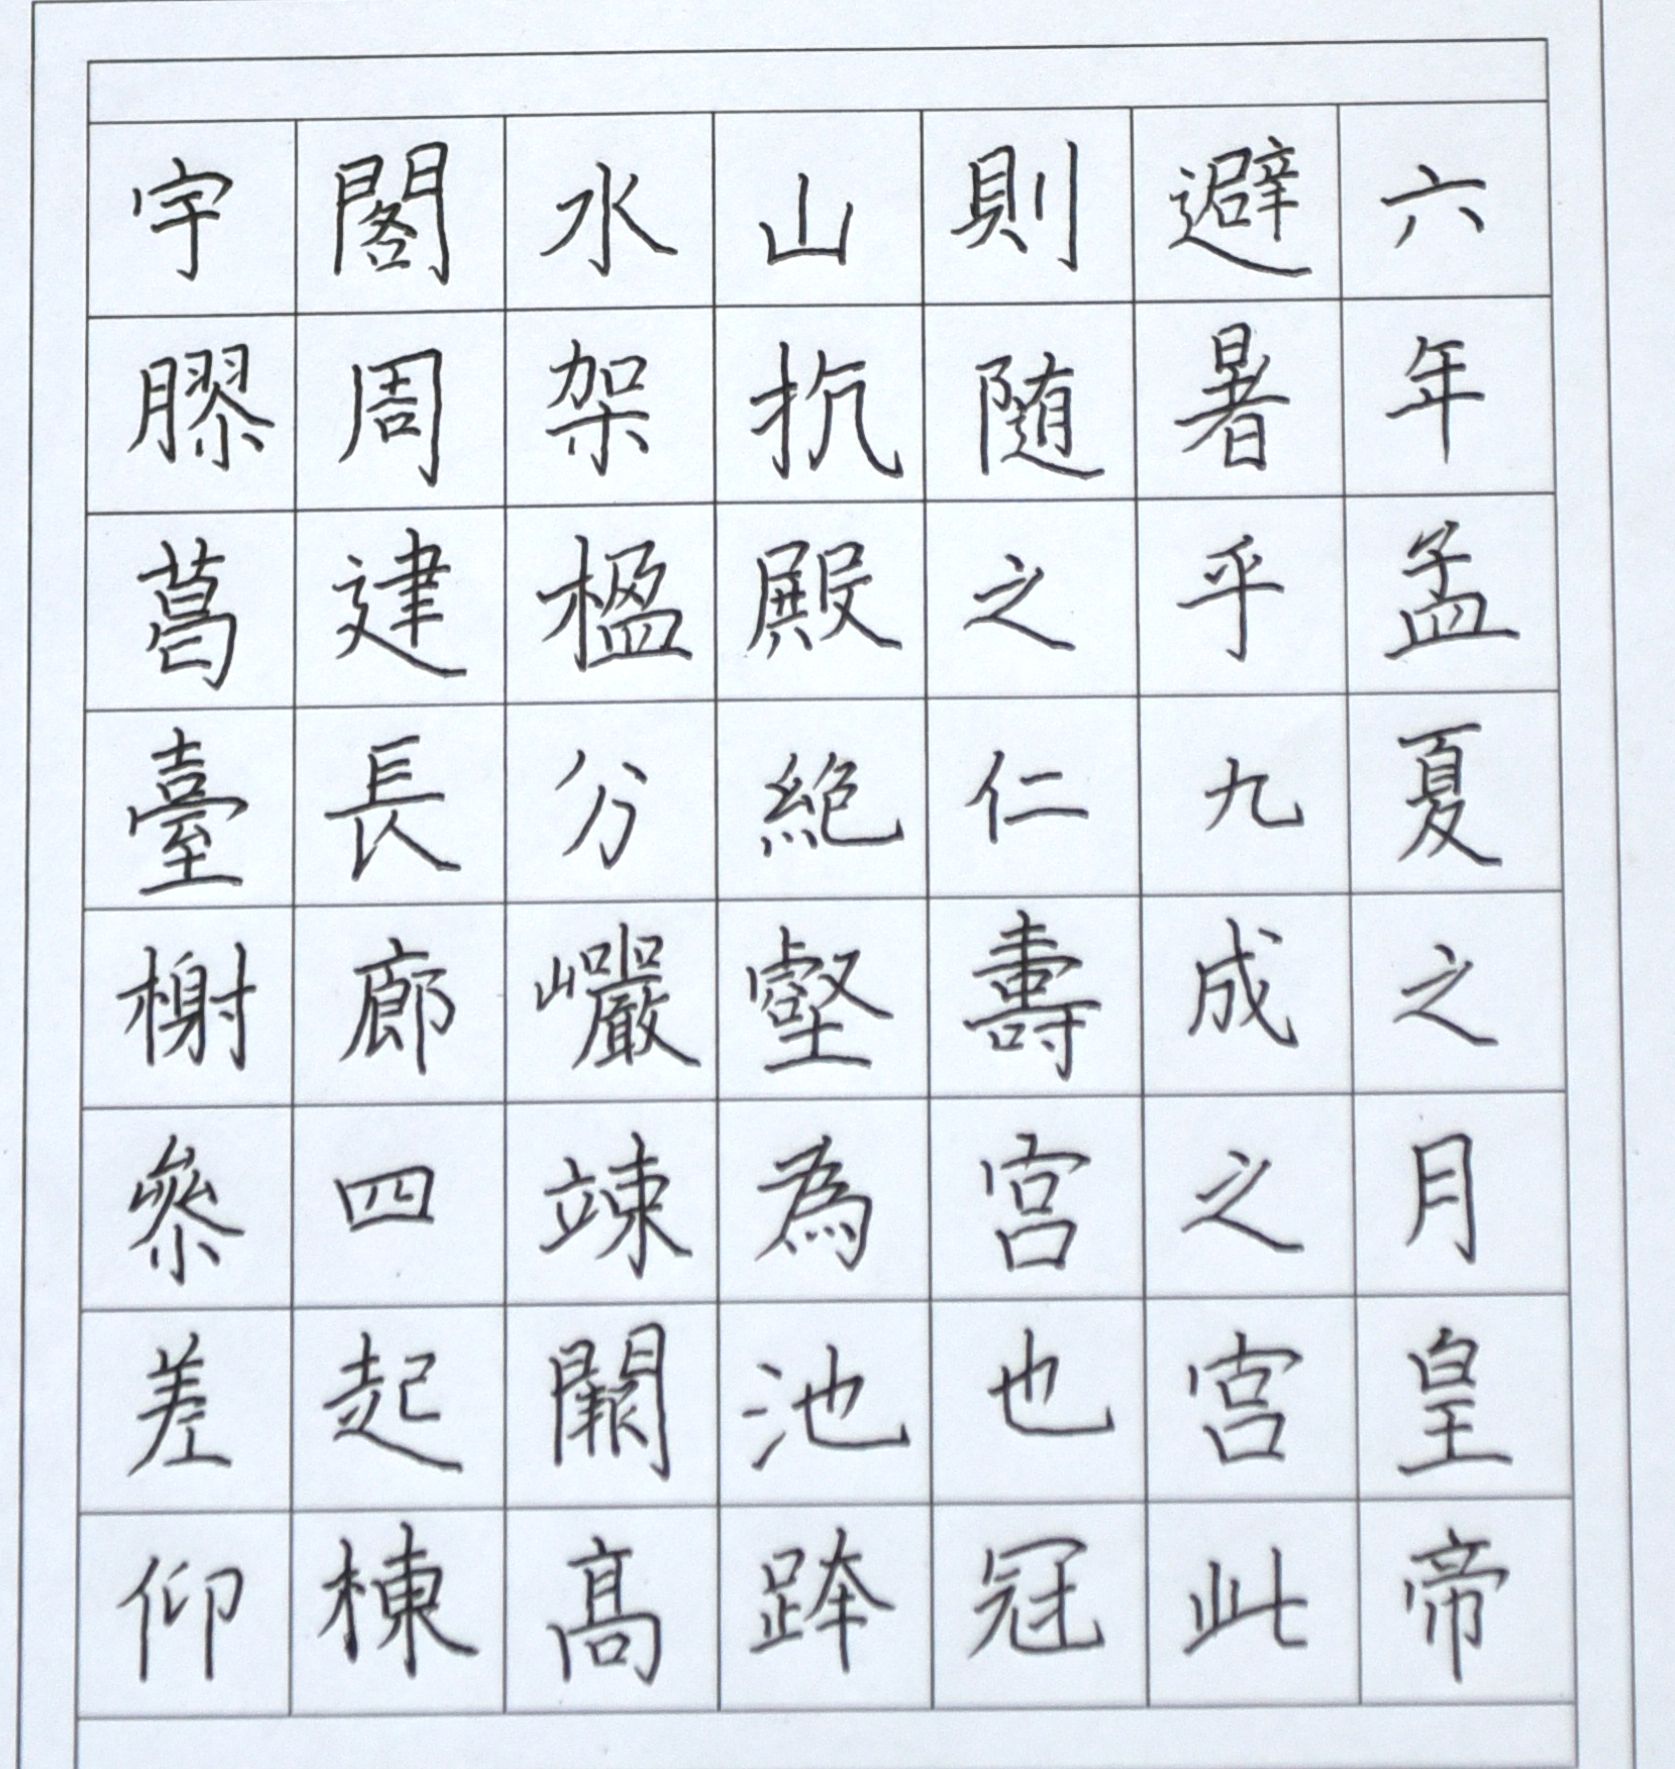 六年孟夏之月皇帝
避暑乎九成之宮此
則随之仁壽宮也冠
山抗殿絶壑為池跨
水架楹分巖竦闕高
閣周建長廊四起棟
宇膠葛臺榭參差仰